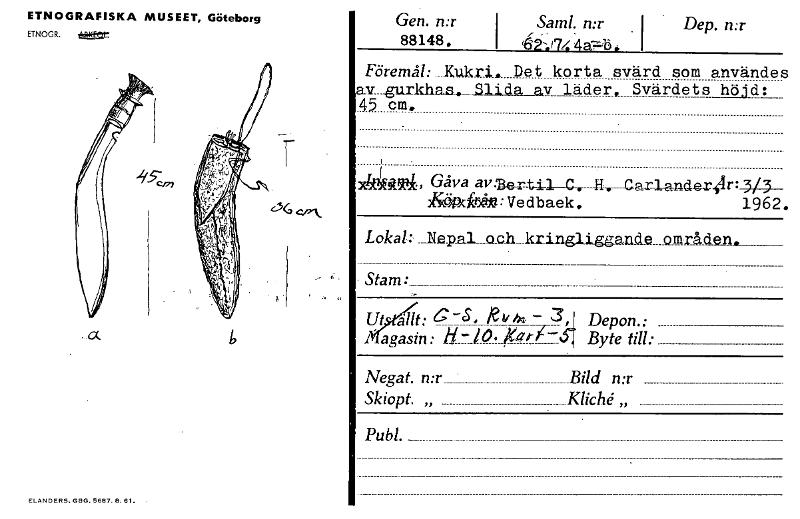 ETNOGRAFISKA MUSEET, Göteborg
ETNOGR. ARKEOL.
45 cm
36 cm
a b
ELANDERS. GBG. 5687. 8. 61.
Gen. n:r Saml. n:r Dep. n:r
88148. 62.7.4a-b.
Föremål: Kukri. Det korta svärd som användes
av gurkhas. Slida av läder. Svärdets höjd:
45 cm.
Insaml. Gåva av: Bertil C. H. Carlander, År: 3/3
Köp från: Vedbaek. 1962.
Lokal: Nepal och kringliggande områden.
Stam:
Utställt: G-S. Rum - 3. Depon.:
Magasin: H-10. Kart-5. Byte till:
Negat. n:r Bild n:r
Skiopt. „ Kliché „
Publ.